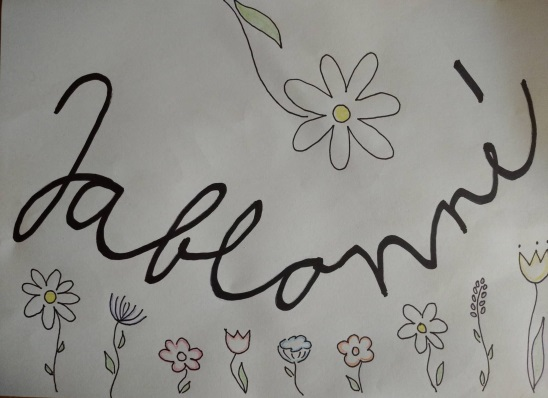 Jablonné